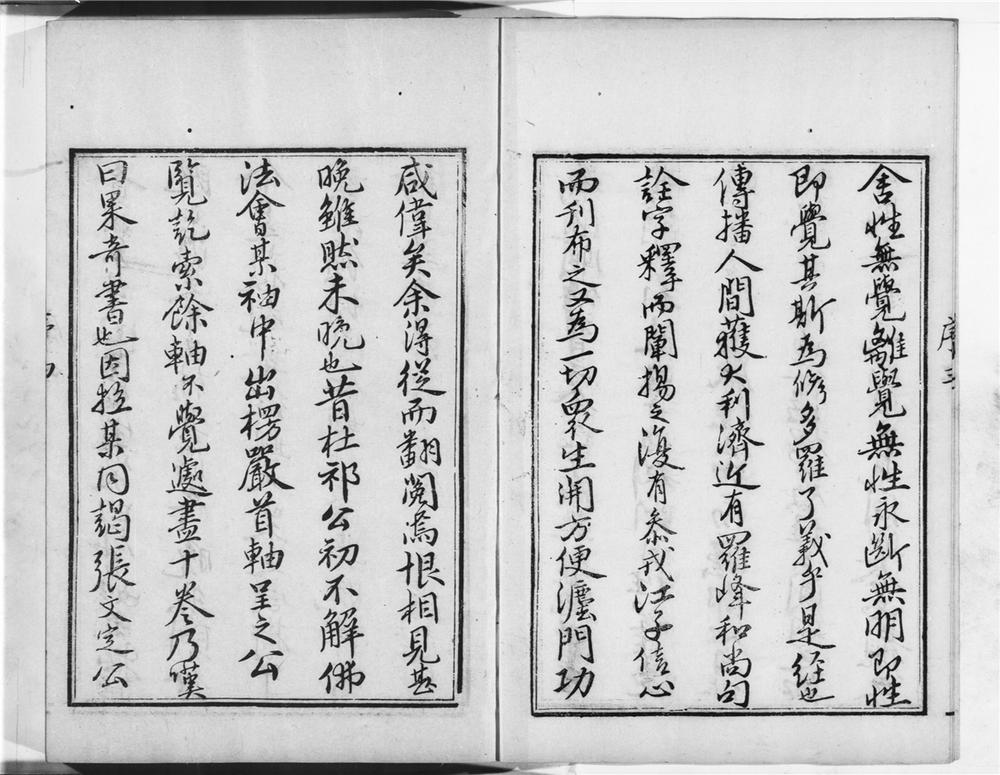 舍性無覺離覺無性永斷無明即性
即覺其斯為修多羅了義乎是經也
傳播人間獲大利濟近有羅峰和尚句
詮字釋而闡揚之復有叅戎江子信心
而刊布之又為一切眾生開方便法門功
咸偉矣余得從而翻閱焉恨相見甚
晚雖然未晚也昔杜祁公初不解佛
法會某袖中出楞嚴首軸呈之公
覽訖索餘軸不覺遽盡十卷乃嘆
曰果奇書也因拉某同謁張文定公
序三